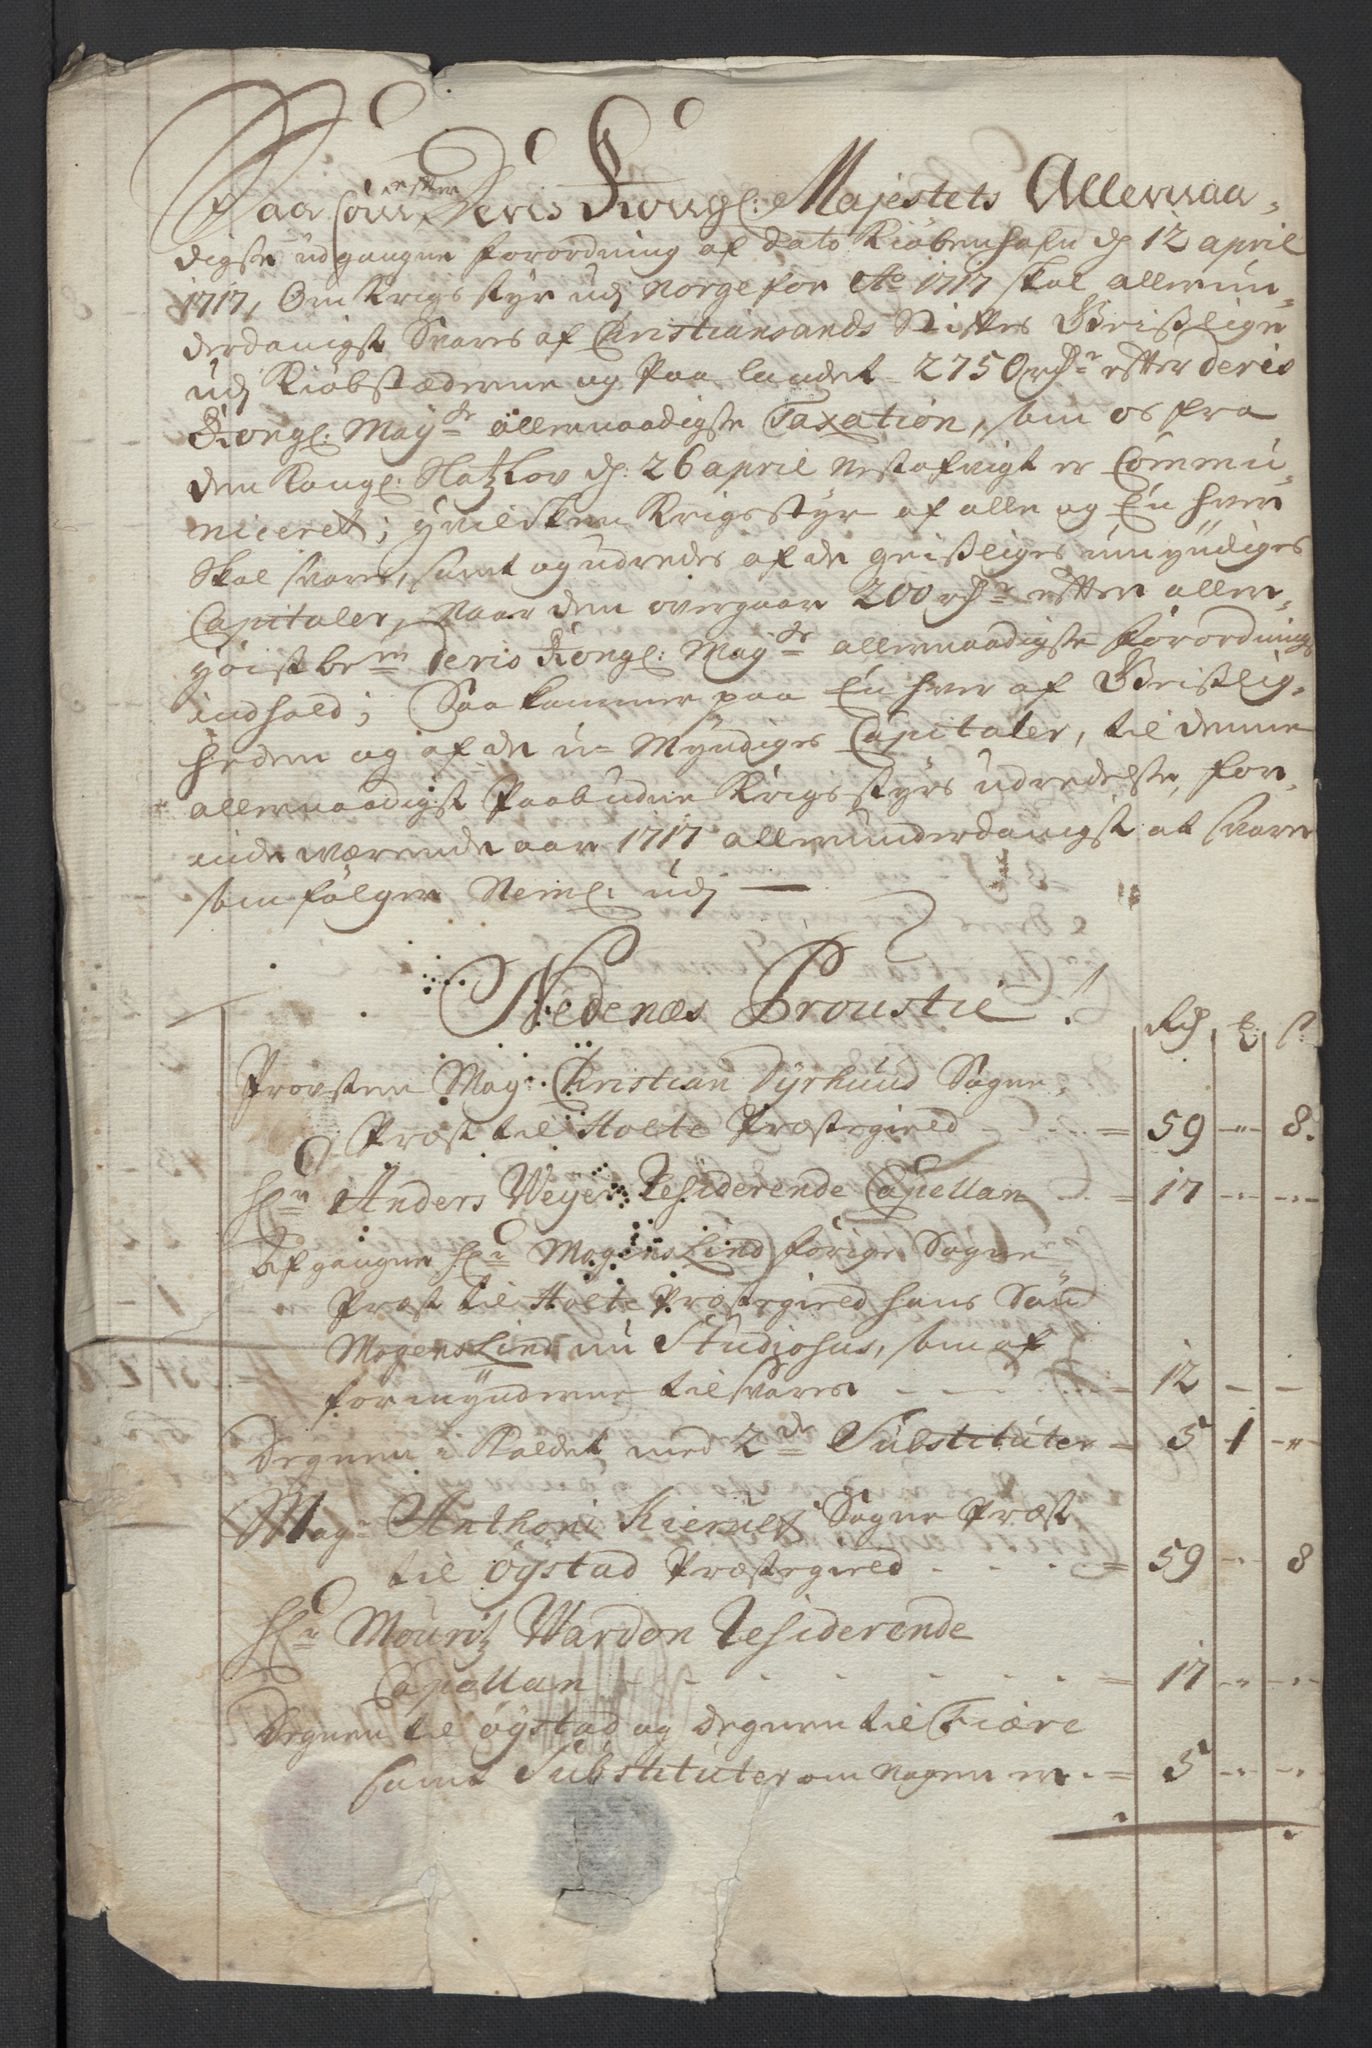 Saasom efter Deris Kongl: Majestets Allernaa-
digste udgangne forordning af dato Kiøbenhafn d: 12 april
1717, Om Krigsstyr udj Norge for Ao 1717 skal allerun-
derdanigst Svares af Christiansands Stiftes Geistlige
udj Kiøbstæderne og Paa landet 2750 rdr efter deris
Kongl: Mayts allernaadigste Taxation, som os fra
den Kongl: Slotzlov d: 26 april nestafvigt er Commu-
niceret; hvilken Krigsstyr af alle og En hver
skal svares, samt og udredes af de geistliges umyndiges
Capitaler, naar dem overgaar 200 rdr efter aller-
høistbem: deris Kongl: Mayts allernaadigste forordnings
indhold; Saa kommer paa En hver af Geistlig-
heden og af de u- Myndiges Capitaler, til denne
allernaadigst Paabudne Krigsstyrs udredelse, for-
indeværende aar 1717 allerunderdanigst at svare
som følger Neml: udj
Nedenæs Proustie
Rd | £ | s
Provsten Mag: Christian Dyrhuud Sogne
Præst til Holte Præstegield - 59 - " - 8.
Hr Anders Weyer Residerende Capellan - 17 - " - "
Afgangne Hr Mogens Lind forige Sogne
Præst til Holte Præstegield hans Søn
Mogens Lind nu Studiosus, som af
formynderne tilsvares - 12 - -
Degnen i Kaldet med 2de Substituter - 5 - 1 - "
Mag: Anthoni Kierulf Sogne Præst
til Øystad Præstegield - 59 - " - 8
Hr Mouritz Wardon Residerende
Capellan - 17 - " - "
Degnen til Øystad og degnen til Fiære
samt Substituter om nogen er - 5 - " - "